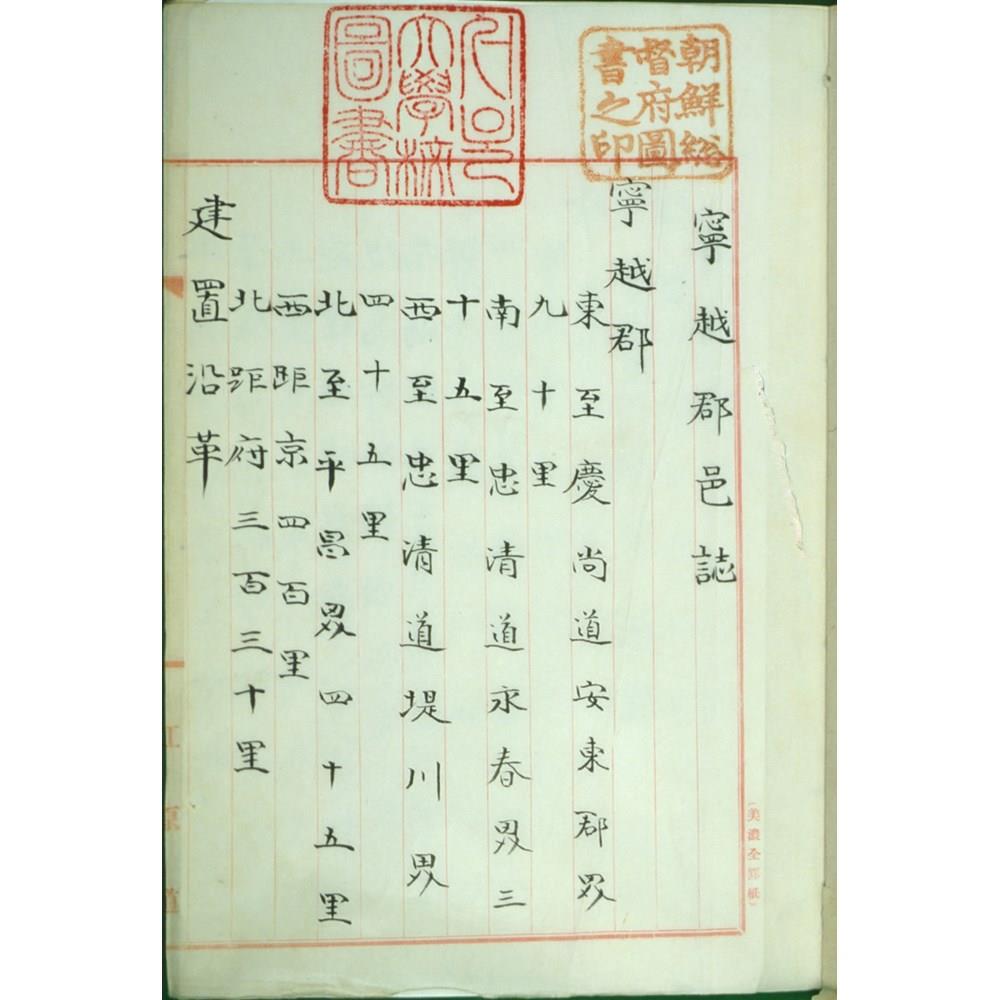 朝鮮総
督府圖
書之印
서울
大學校
圖書
寧越郡邑誌
寧越郡
東至慶尚道安東郡界
九十里
南至忠清道永春界三
十五里
西至忠清道堤川界
四十五里
北至平昌界四十五里
西距京四百里
北距府三百三十里
建置沿革
江原道